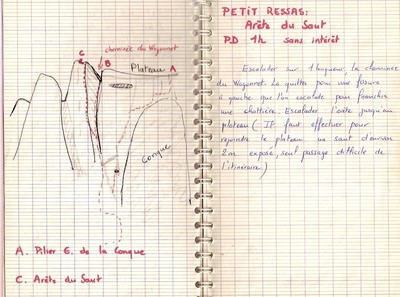 C
cheminée du Wagonnet
B
Plateau
A
Conque
A. Pilier E. de la Conque
C. Arête du Saut
PETIT RESSAS:
Arête du Saut
PD 1h sans intérêt
Escalader sur 1 longueur, la cheminée
du Wagonnet. La quitter pour une fissure
à gauche que l'on escalade pour franchir
une chattière. Escalader l'arête jusqu'au
plateau (IF faut effectuer pour
rejoindre le plateau un saut d'environ
2m exposé, seul passage difficile de
l'itinéraire.)